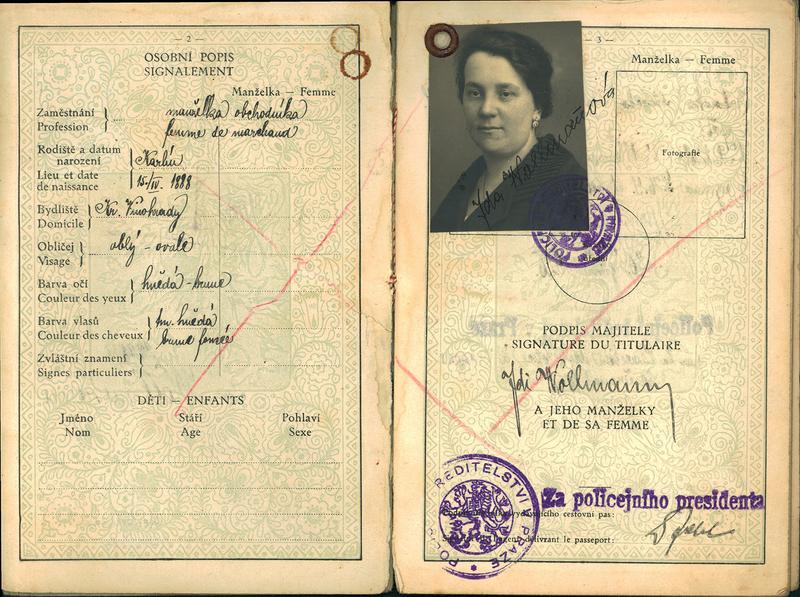 — 2 —
OSOBNÍ POPIS
SIGNALEMENT
Manželka — Femme
Zaměstnání
Profession
manželka obchodníka
femme de marchand
Rodiště a datum
narození
Lieu et date
de naissance
Karlín
15/IV. 1888
Bydliště
Domicile
Kr. Vinohrady
Obličej
Visage
oblý - ovale
Barva očí
Couleur des yeux
hnědá - brune
Barva vlasů
Couleur des cheveux
tm. hnědá
brune foncée
Zvláštní znamení
Signes particuliers
DĚTI — ENFANTS
Jméno Stáří Pohlaví
Nom Age Sexe
— 3 —
Manželka — Femme
Fotografie
Ida Wollmannová
PODPIS MAJITELE
SIGNATURE DU TITULAIRE
Wollmann
A JEHO MANŽELKY
ET DE SA FEMME
ŘEDITELSTVÍ V PRAZE
Za policejního presidenta
cestovní pas:
délivrant le passeport: